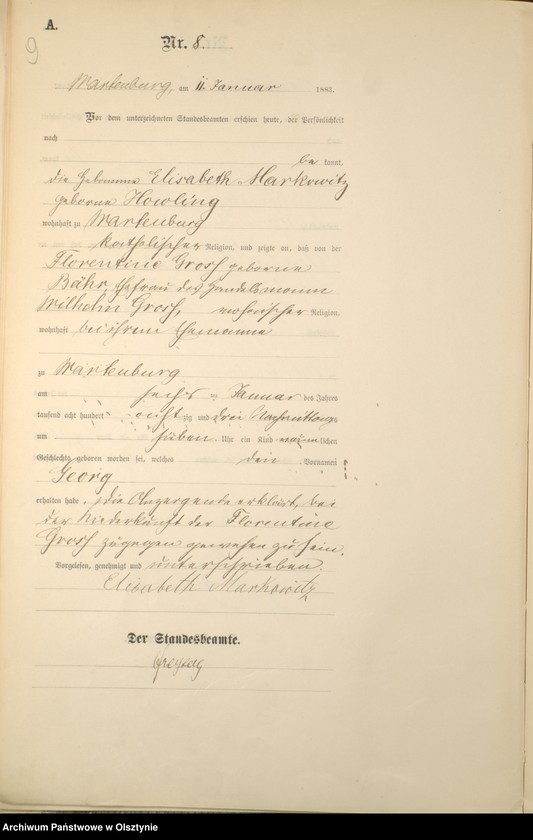 A.
9
Nr. 8.
Wartenburg, am 11. Januar 1883.
Vor dem unterzeichneten Standesbeamten erschien heute, der Persönlichkeit
nach
be kannt,
die Hebamme Elisabeth Markowitz
geborne Howling
wohnhaft zu Wartenburg
katholischer Religion, und zeigte an, daß von der
Florentine Grosz geborne
Bähr, Ehefrau des Handelsmann
Wilhelm Grosz, mosaischer Religion,
wohnhaft bei ihrem Ehemanne
zu Wartenburg
am sechs ten Januar des Jahres
tausend acht hundert acht zig und drei Nachmittags
um sieben Uhr ein Kind männlichen
Geschlechts geboren worden sei, welches den Vornamen
Georg
erhalten habe. Die Anzeigende erklärt, bei
der Niederkunft der Florentine
Grosz zugegen gewesen zu sein.
Vorgelesen, genehmigt und unterschrieben.
Elisabeth Markowitz
Der Standesbeamte.
Freytag
Archiwum Państwowe w Olsztynie